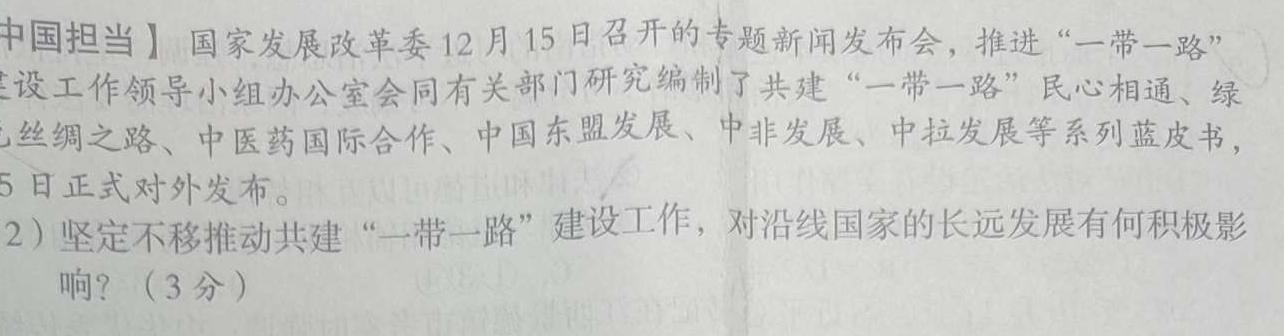 中国担当】 国家发展改革委12月15日召开的专题新闻发布会，推进“一带一路”
设工作领导小组办公室会同有关部门研究编制了共建“一带一路”民心相通、绿
丝绸之路、中医药国际合作、中国东盟发展、中非发展、中拉发展等系列蓝皮书，
5日正式对外发布。
2）坚定不移推动共建“一带一路”建设工作，对沿线国家的长远发展有何积极影
响？（3分）